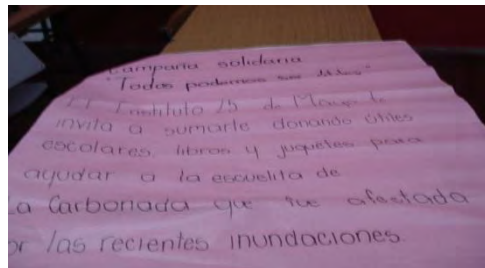 Campaña solidaria
"Todos podemos ser útiles"
El Instituto 25 de Mayo te
invita a sumarte donando útiles
escolares, libros y juguetes para
ayudar a la escuelita de
La Carbonada que fue afectada
or las recientes inundaciones.